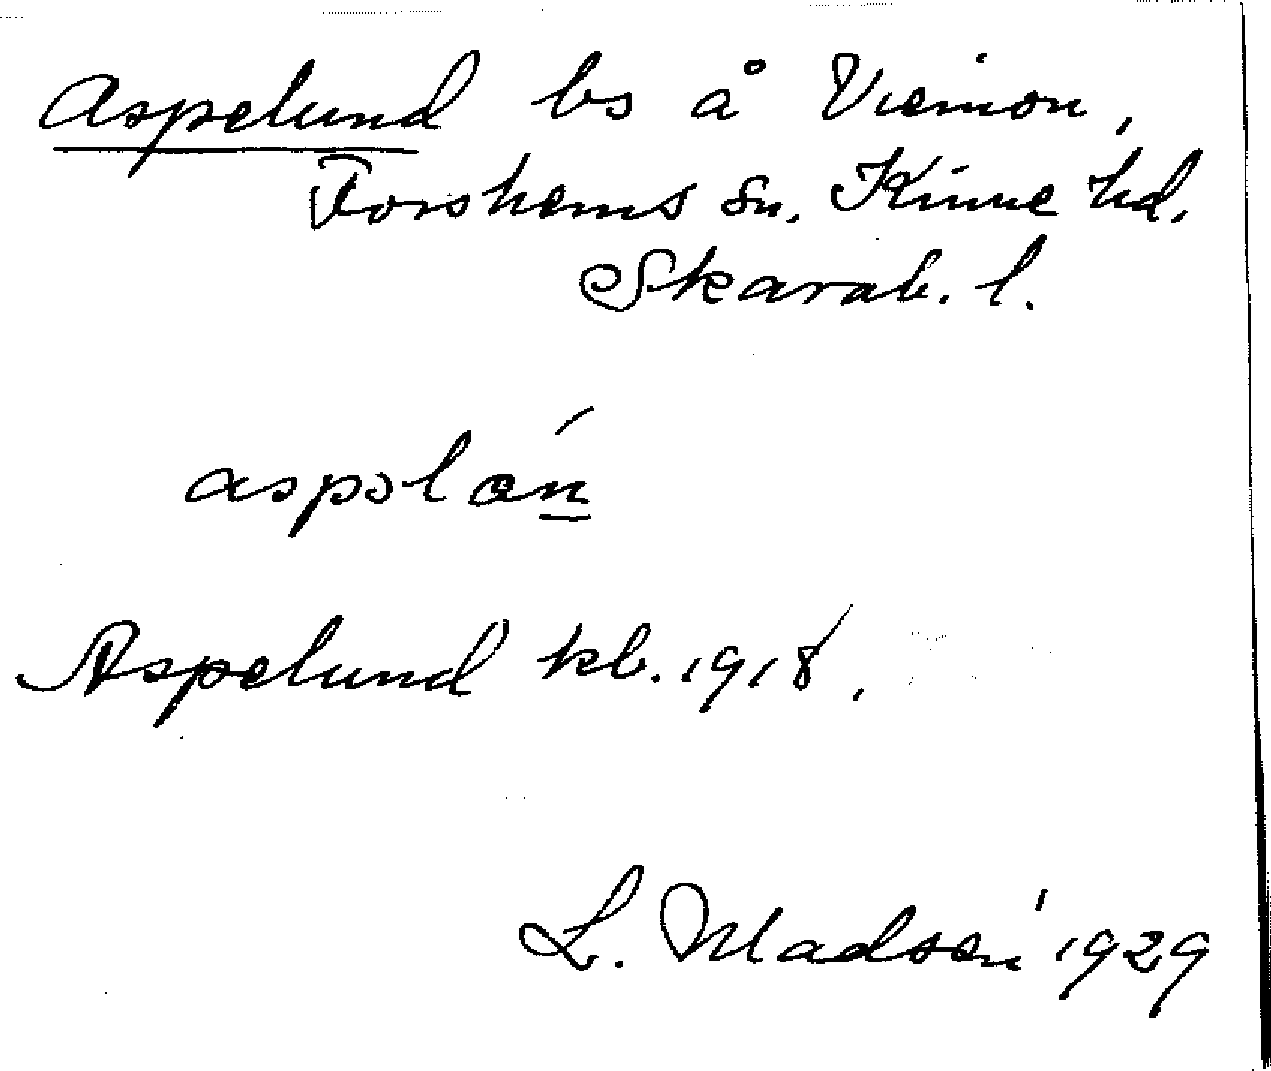 Aspelund bs å Viemon,
Forshems sn. Kinne hd.
Skarab. l.
Aspelund kb. 1918.
L. Madsen 1929